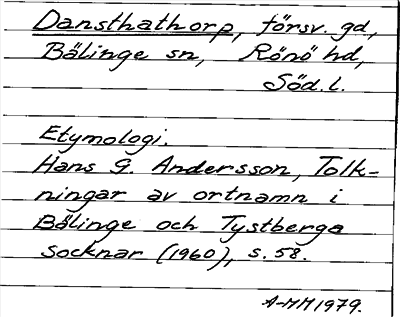 Dansthathorp, försv. gd,
Bälinge sn, Rönö hd,
Söd. l.
Etymologi.
Hans G. Andersson, Tolk-
ningar av ortnamn i
Bälinge och Tystberga
socknar (1960), s. 58.
A-MM 1979.